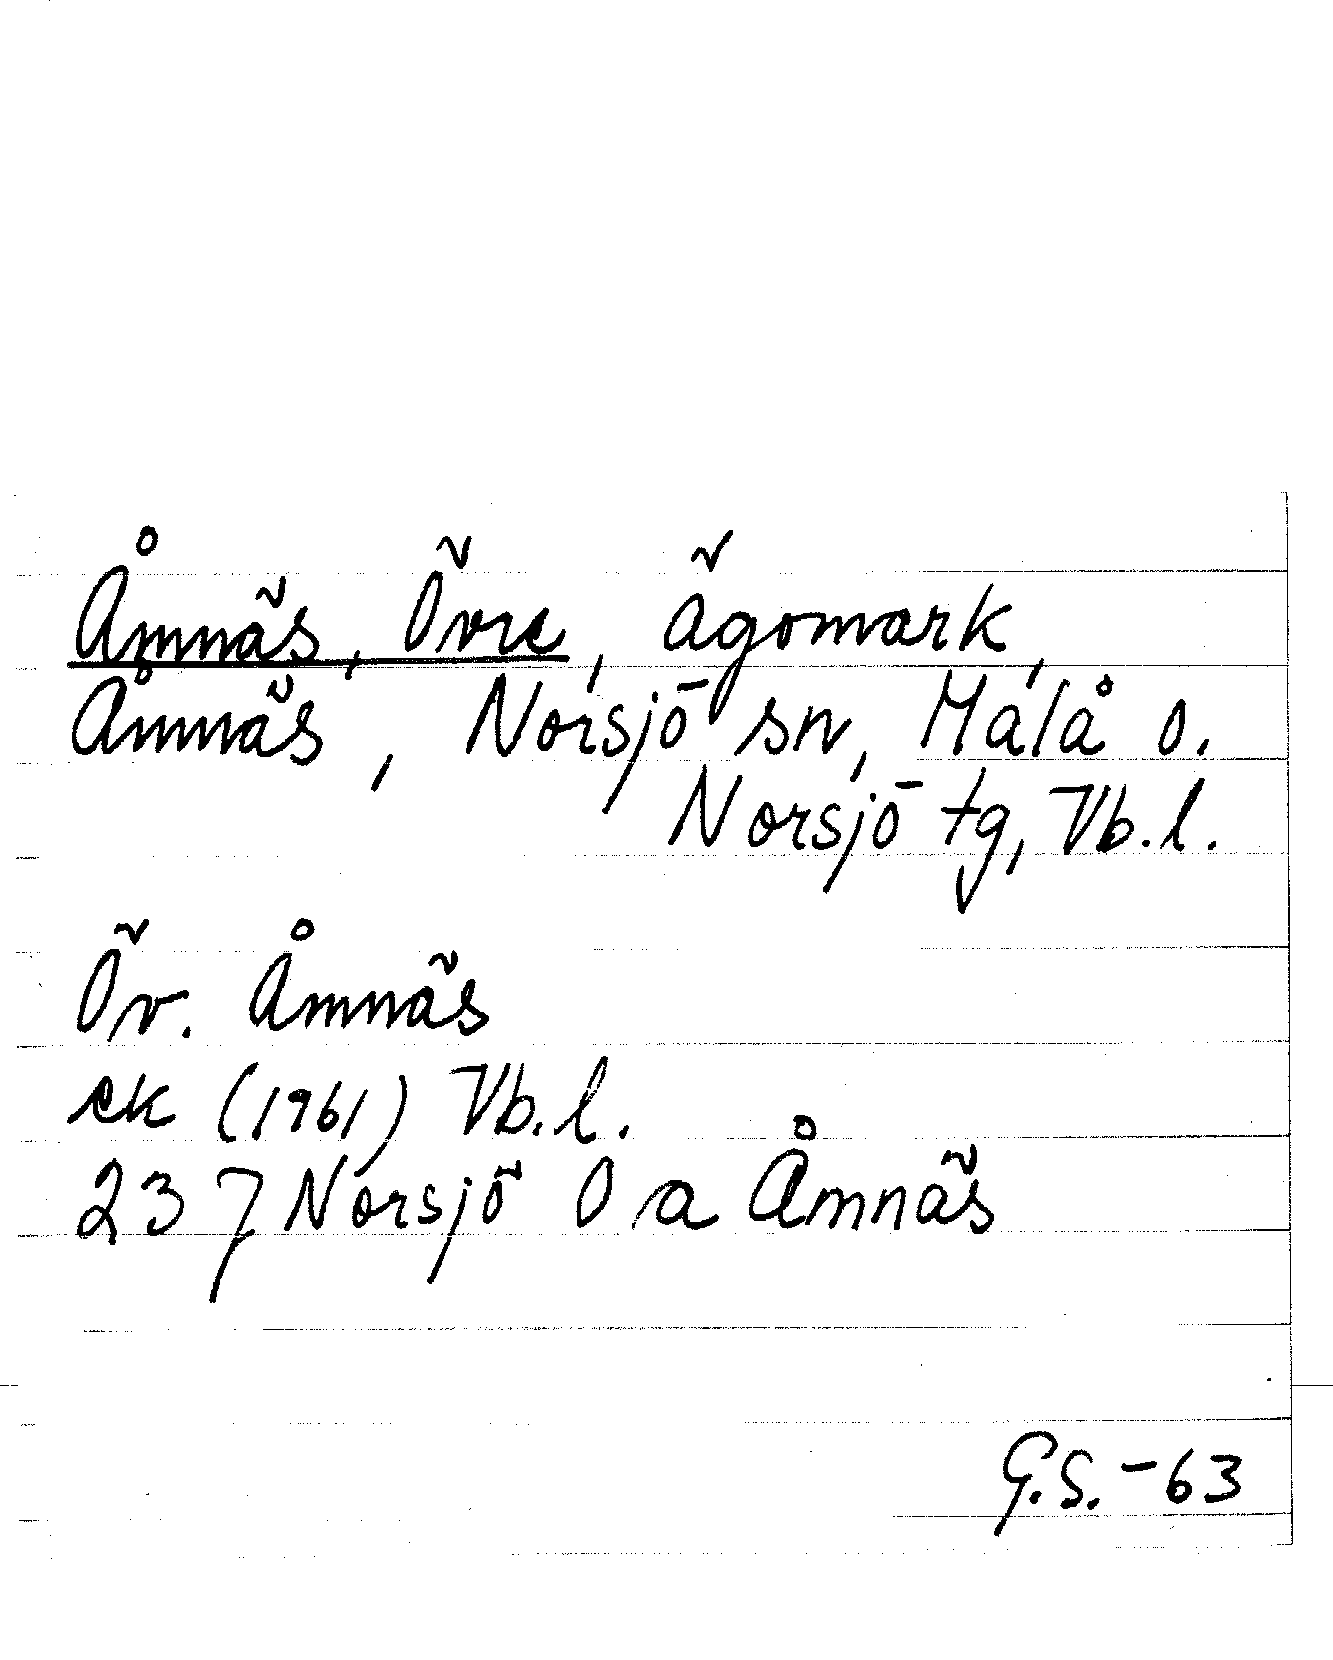 Åmnäs, Övre, ägomark,
Åmnäs, Norsjö sn, Malå o.
Norsjö tg, Vb.l.
Öv. Åmnäs
ek (1961) Vb.l.
237 Norsjö O a Åmnäs
G.S.-63